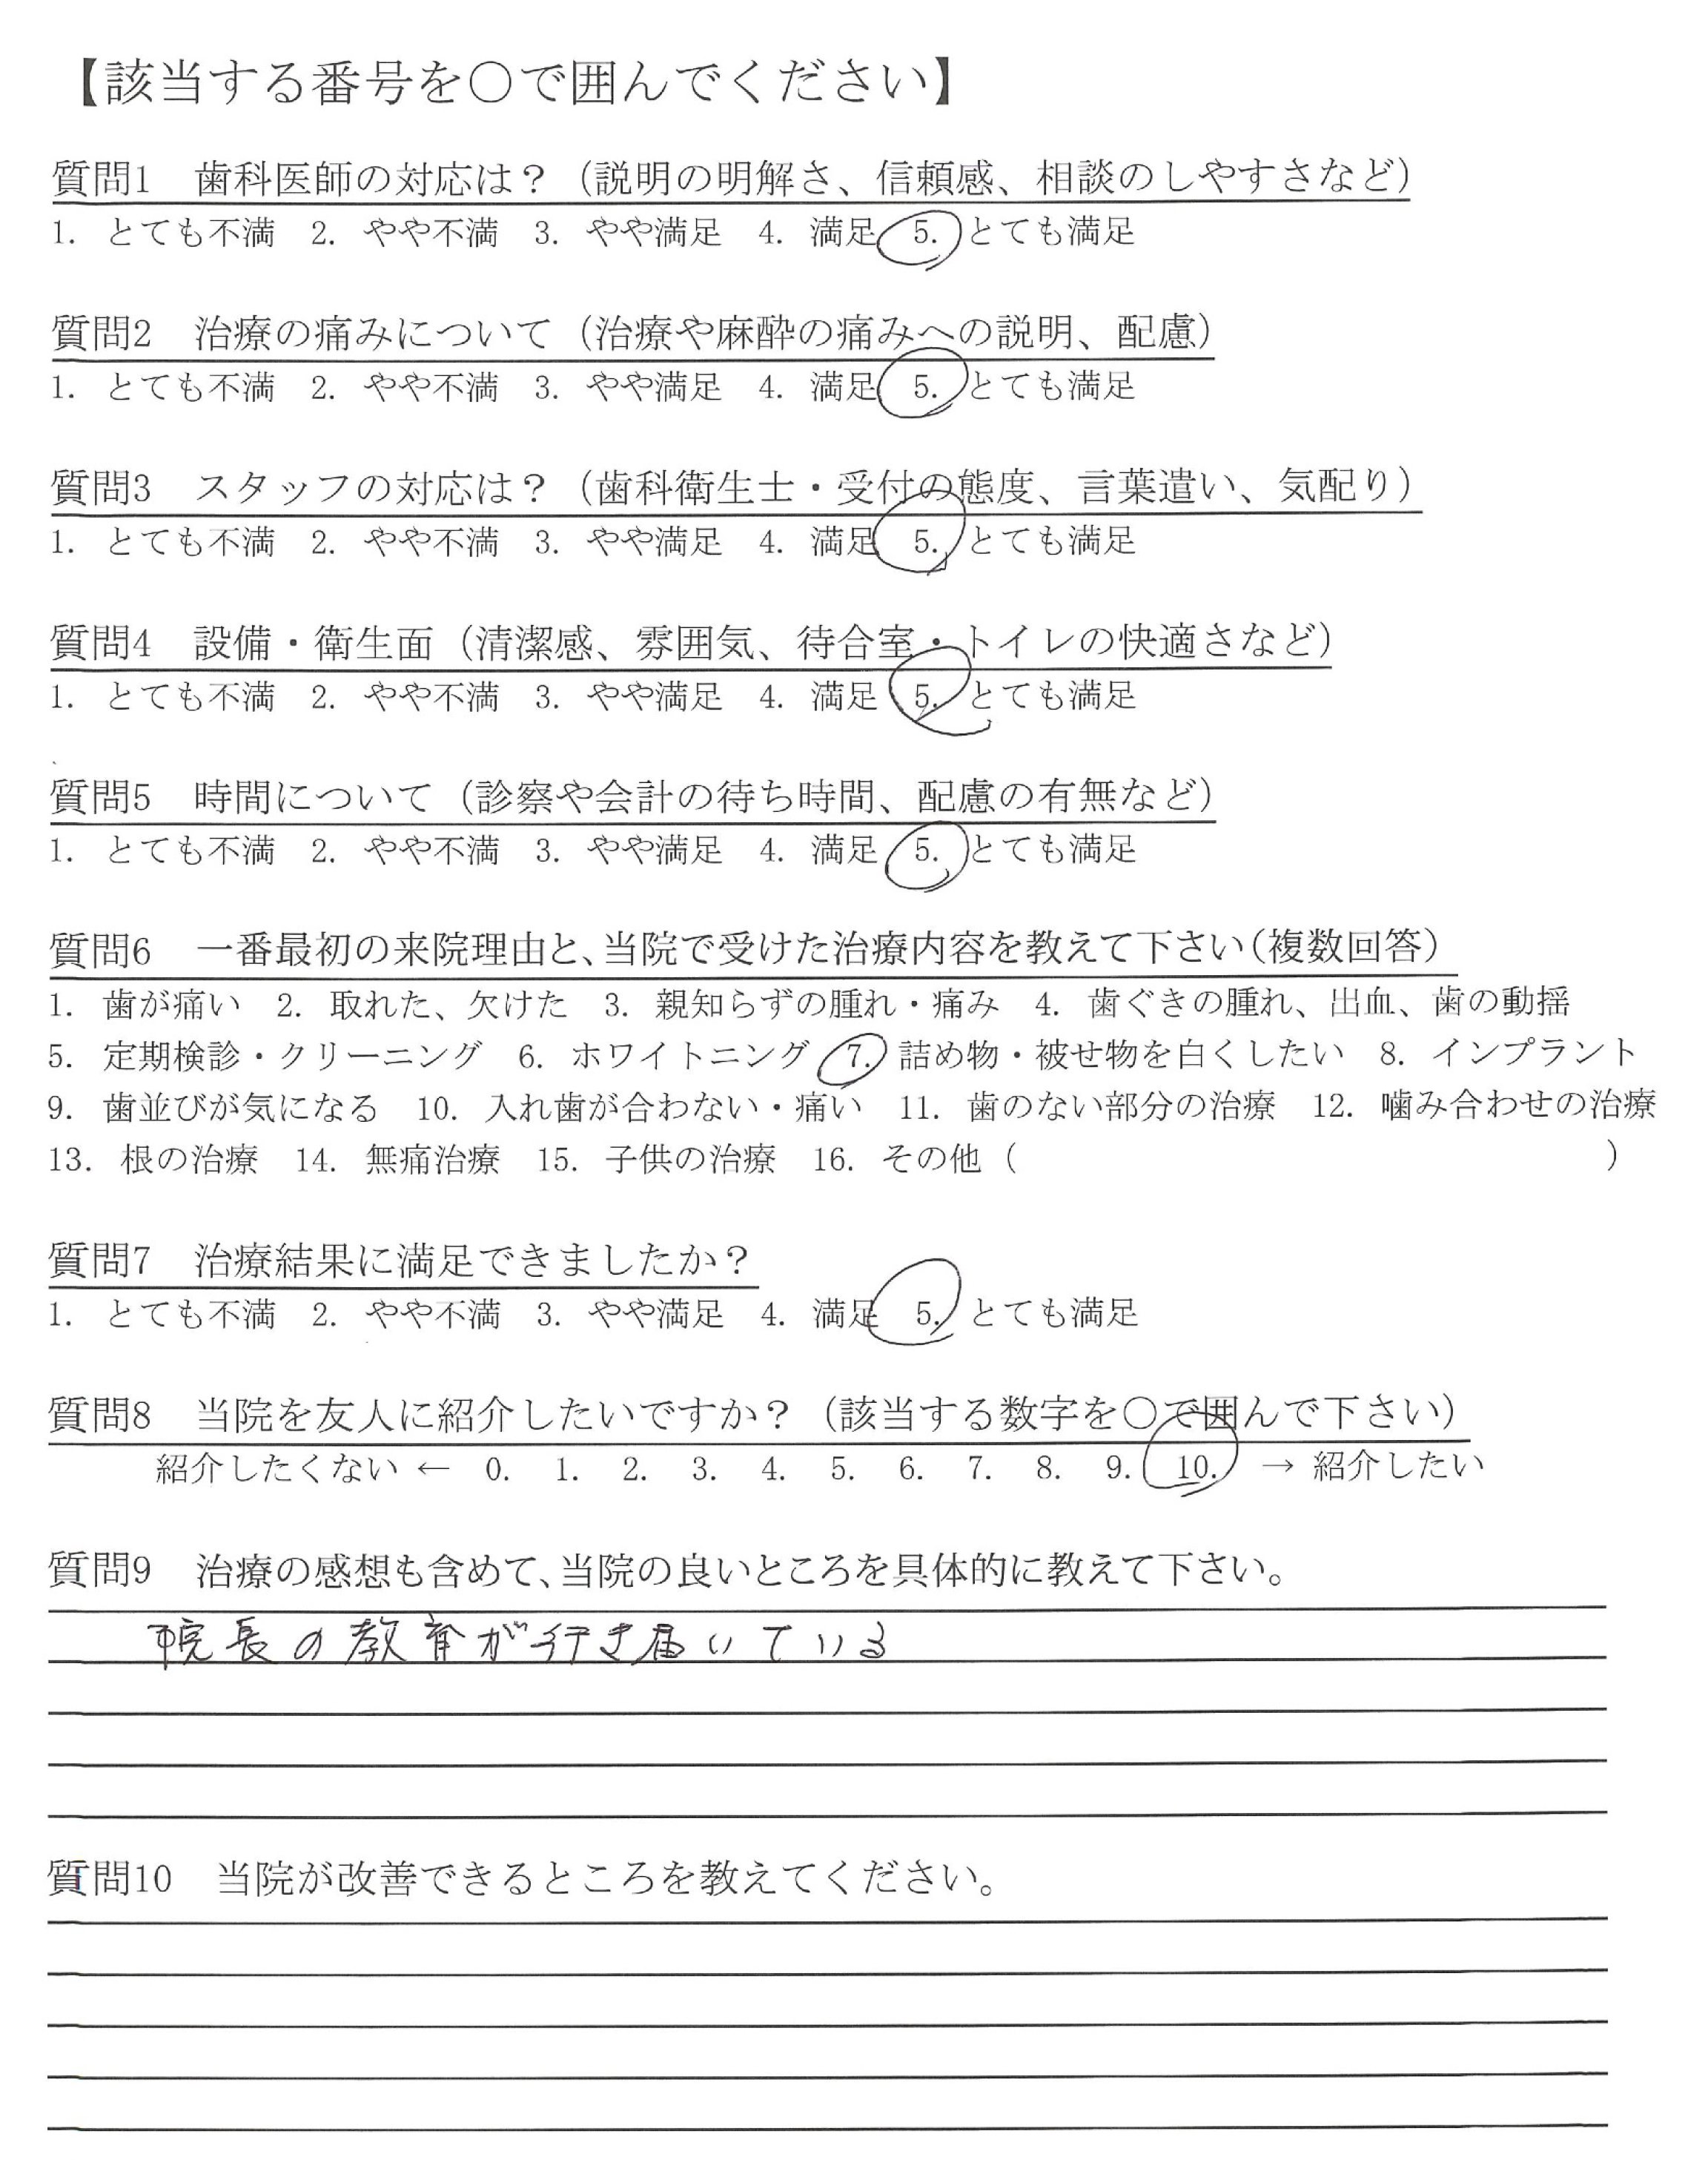 【該当する番号を○で囲んでください】
質問1　歯科医師の対応は？（説明の明解さ、信頼感、相談のしやすさなど）
1. とても不満　2. やや不満　3. やや満足　4. 満足　5. とても満足
質問2　治療の痛みについて（治療や麻酔の痛みへの説明、配慮）
1. とても不満　2. やや不満　3. やや満足　4. 満足　5. とても満足
質問3　スタッフの対応は？（歯科衛生士・受付の態度、言葉遣い、気配り）
1. とても不満　2. やや不満　3. やや満足　4. 満足　5. とても満足
質問4　設備・衛生面（清潔感、雰囲気、待合室・トイレの快適さなど）
1. とても不満　2. やや不満　3. やや満足　4. 満足　5. とても満足
質問5　時間について（診察や会計の待ち時間、配慮の有無など）
1. とても不満　2. やや不満　3. やや満足　4. 満足　5. とても満足
質問6　一番最初の来院理由と、当院で受けた治療内容を教えて下さい（複数回答）
1. 歯が痛い　2. 取れた、欠けた　3. 親知らずの腫れ・痛み　4. 歯ぐきの腫れ、出血、歯の動揺
5. 定期検診・クリーニング　6. ホワイトニング　7. 詰め物・被せ物を白くしたい　8. インプラント
9. 歯並びが気になる　10. 入れ歯が合わない・痛い　11. 歯のない部分の治療　12. 噛み合わせの治療
13. 根の治療　14. 無痛治療　15. 子供の治療　16. その他（　　　　　　　　　　）
質問7　治療結果に満足できましたか？
1. とても不満　2. やや不満　3. やや満足　4. 満足　5. とても満足
質問8　当院を友人に紹介したいですか？（該当する数字を○で囲んで下さい）
紹介したくない ← 0. 1. 2. 3. 4. 5. 6. 7. 8. 9. 10. → 紹介したい
質問9　治療の感想も含めて、当院の良いところを具体的に教えて下さい。
院長の教育が行き届いている
質問10　当院が改善できるところを教えてください。